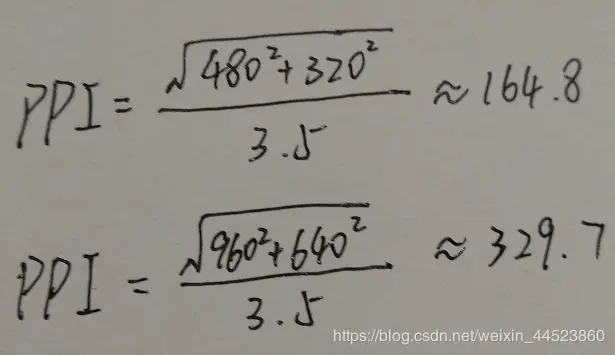 PPI = √(480² + 320²) / 3.5 ≈ 164.8
PPI = √(960² + 640²) / 3.5 ≈ 329.7
https://blog.csdn.net/weixin_44523860